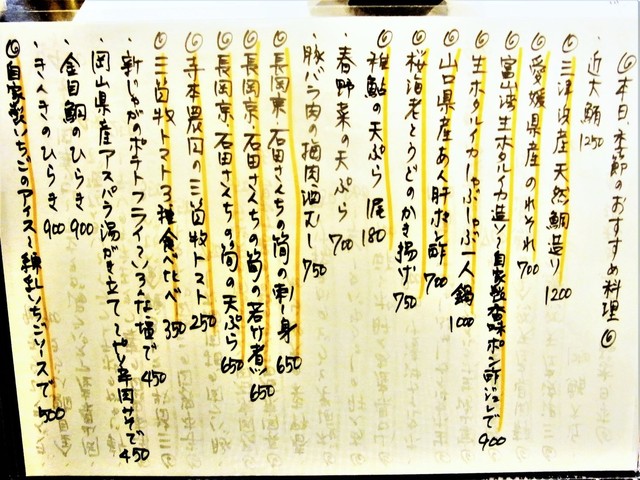 ◎本日、季節のおすすめ料理◎
・近大鮪 1250
◎三津浜産天然鯛造り 1200
◎愛媛県産のれそれ 700
◎富山湾生ホタルイカ造り〜自家製香味ポン酢ジュレで 900
◎生ホタルイカしゃぶしゃぶ一人鍋 1000
◎山口県産あん肝ポン酢 700
◎桜海老とうどのかき揚げ 750
◎稚鮎の天ぷら 1尾 180
・春野菜の天ぷら 700
・豚バラ肉の梅肉酒むし 750
◎長岡京・石田さんちの筍の刺し身 650
◎長岡京・石田さんちの筍の若竹煮 650
◎長岡京・石田さんちの筍の天ぷら 650
◎寺本農園の三箇牧トマト 250
◎三箇牧トマト3種食べ比べ 350
・新じゃがのポテトフライ〜いろんな塩で 450
・岡山県産アスパラ湯がき立て〜 で 450
・金目鯛のひらき 900
・きんきのひらき 900
◎自家製いちごのアイス〜練乳いちごソースで 500